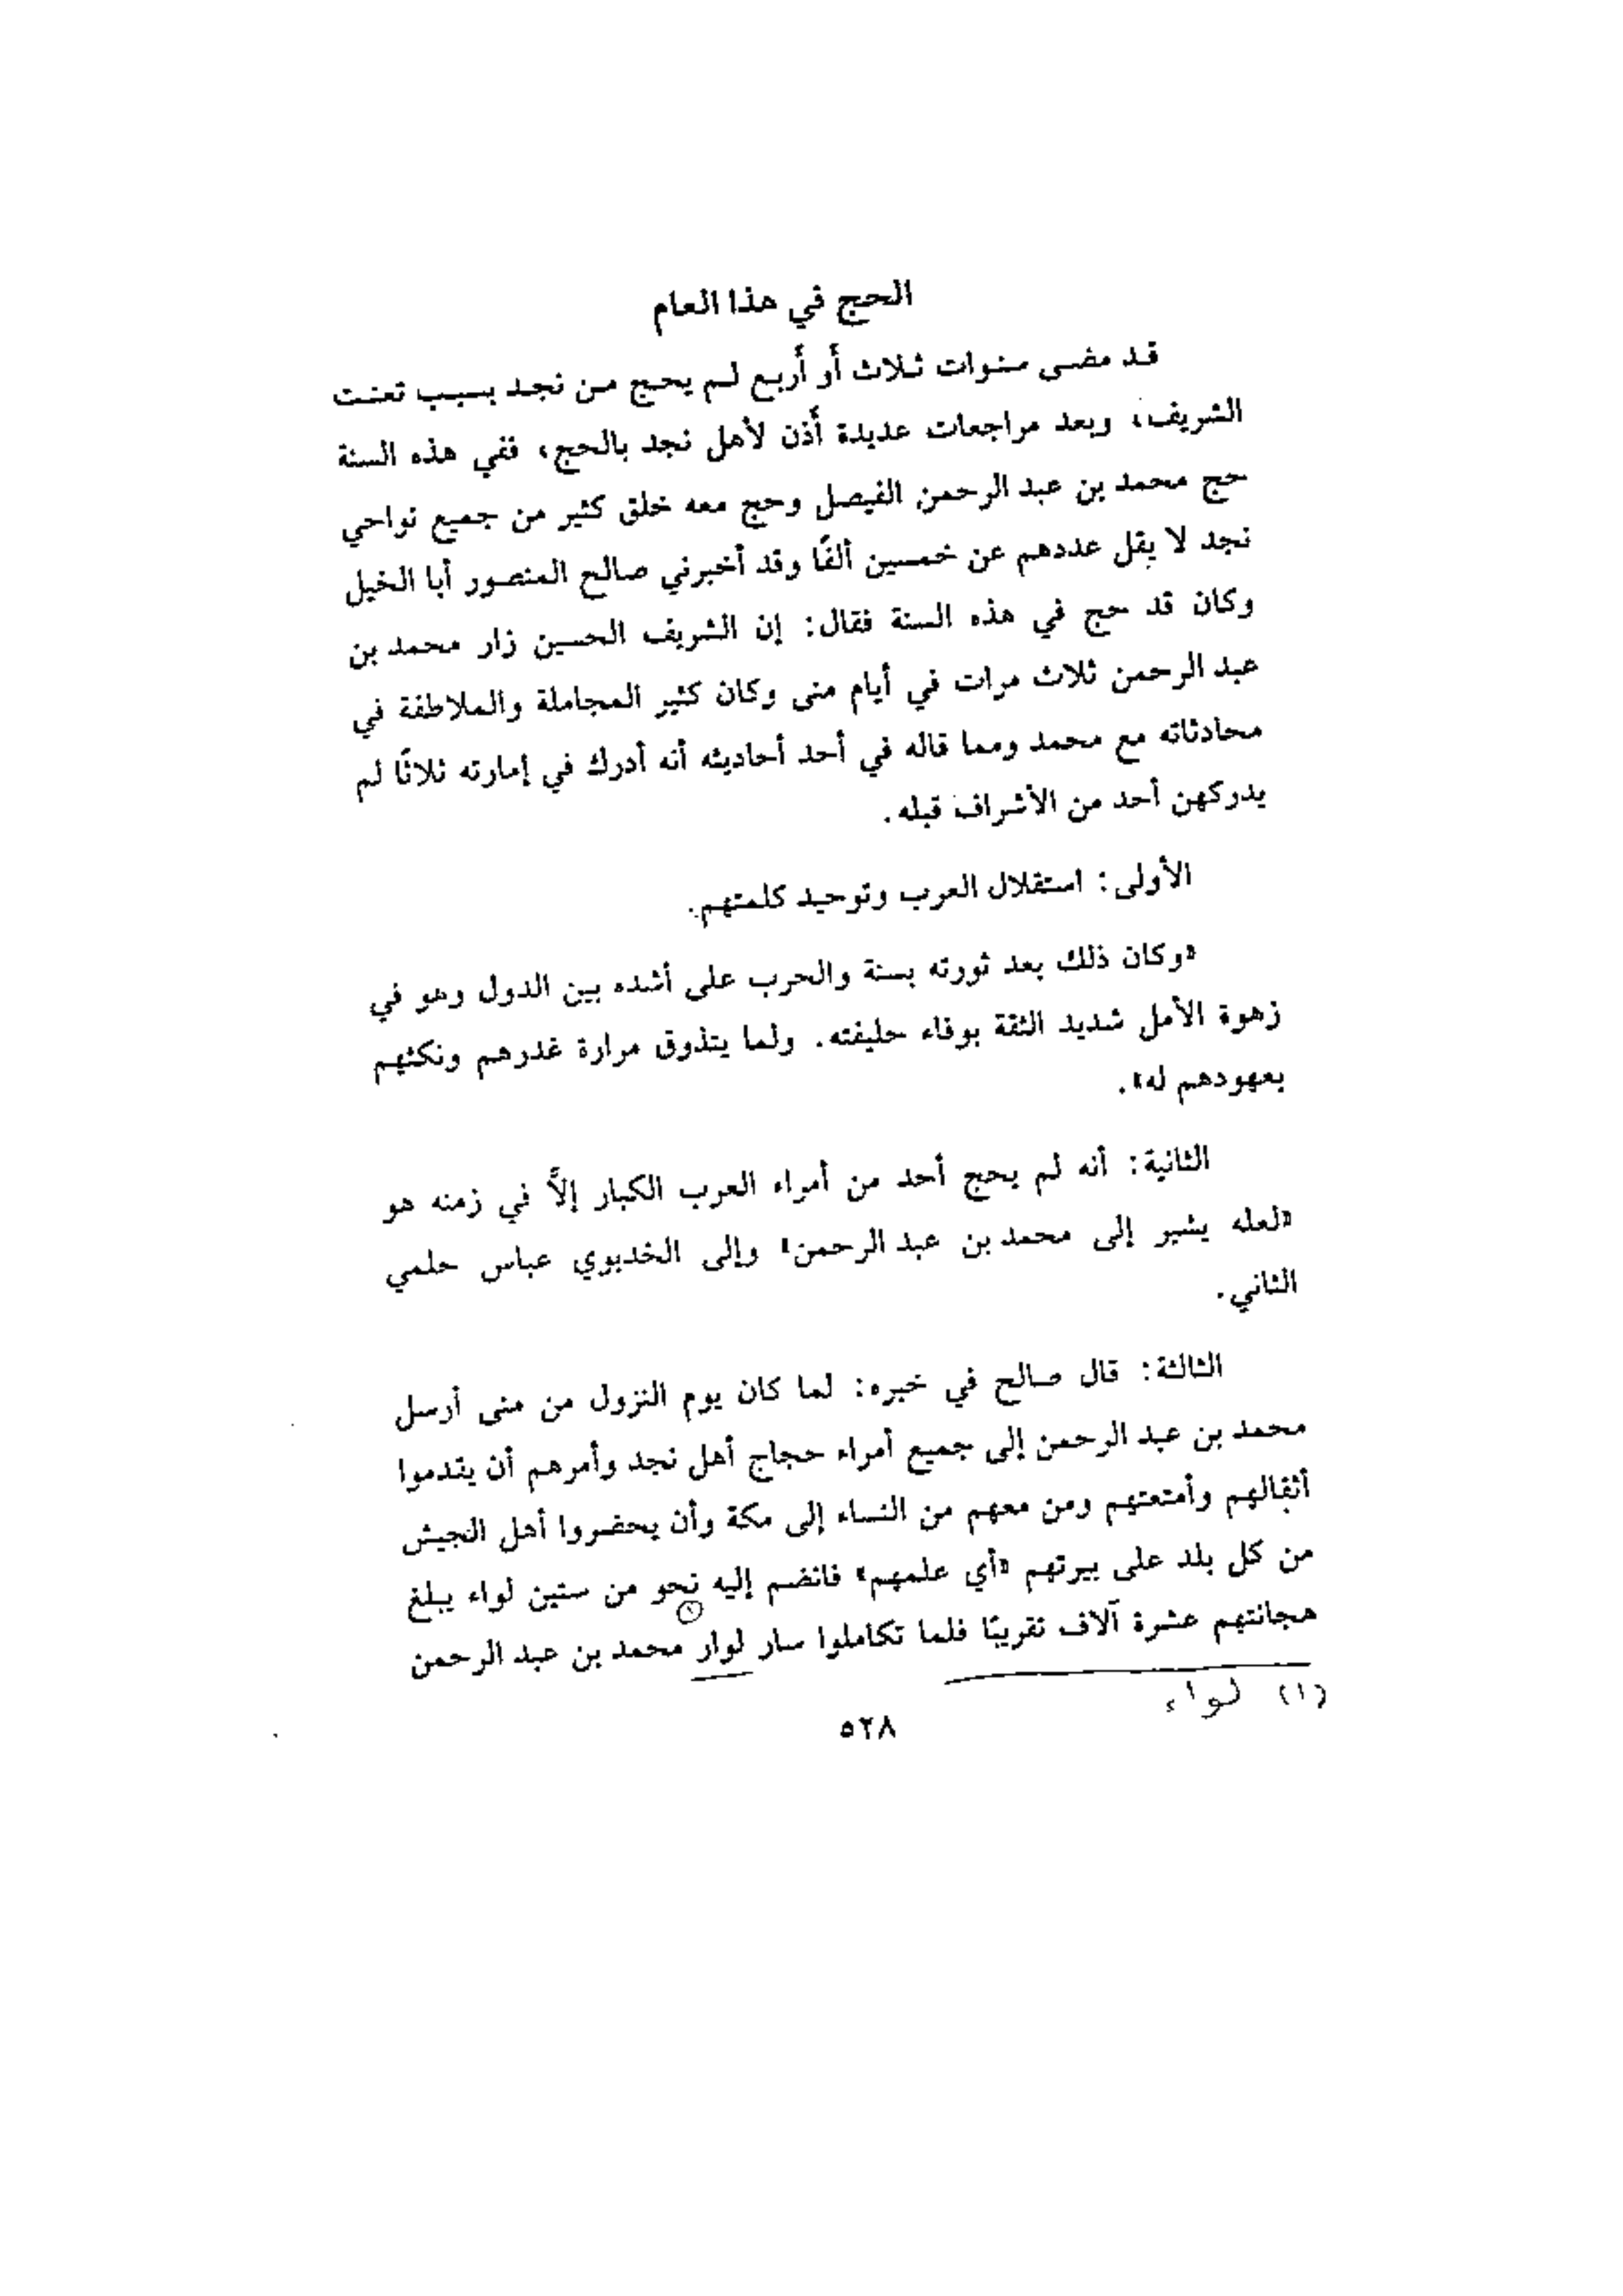 الحج في هذا العام
قد مضى سنوات ثلاث أَو أَربع لم يحج من نجد بسبب تعنت
الشريف، وبعد مراجعات عديدة أَذن لأهل نجد بالحج، ففي هذه السنة
حج محمد بن عبد الرحمن الفيصل وحج معه خلق كثير من جميع نواحي
نجد لا يقل عددهم عن خمسين ألفًا وقد أخبرني صالح المنصور أبا الخيل
وكان قد حج في هذه السنة فقال: إن الشريف الحسين زار محمد بن
عبد الرحمن ثلاث مرات في أيام منى وكان كثير المجاملة والملاطفة في
محادثاته مع محمد ومما قاله في أحد أحاديثه أنه أدرك في إمارته ثلاثًا لم
يدركهن أحد من الأشراف قبله.
الأولى: استقلال العرب وتوحيد كلمتهم.
«وكان ذلك بعد ثورته بسنة والحرب على أشده بين الدول وهو في
زهوة الأمل شديد الثقة بوفاء حليفته. ولما يتذوق مرارة غدرهم ونكثهم
بعهودهم له».
الثانية: أنه لم يحج أحد من أمراء العرب الكبار إلاَّ في زمنه هو
«لعله يشير إلى محمد بن عبد الرحمن» وإلى الخديوي عباس حلمي
الثاني.
الثالثة: قال صالح في خبره: لما كان يوم النزول من منى أرسل
محمد بن عبد الرحمن إلى جميع أمراء حجاج أهل نجد وأمرهم أن يقدموا
أثقالهم وأمتعتهم ومن معهم من النساء إلى مكة وأن يحضروا أهل الجيش
من كل بلد على بيرتهم «أي علمهم» فانضم إليه نحو من ستين لواء يبلغ
هجانتهم عشرة آلاف تقريبًا فلما تكاملوا سار لوار (١) محمد بن عبد الرحمن
(١) لواء
٥٢٨